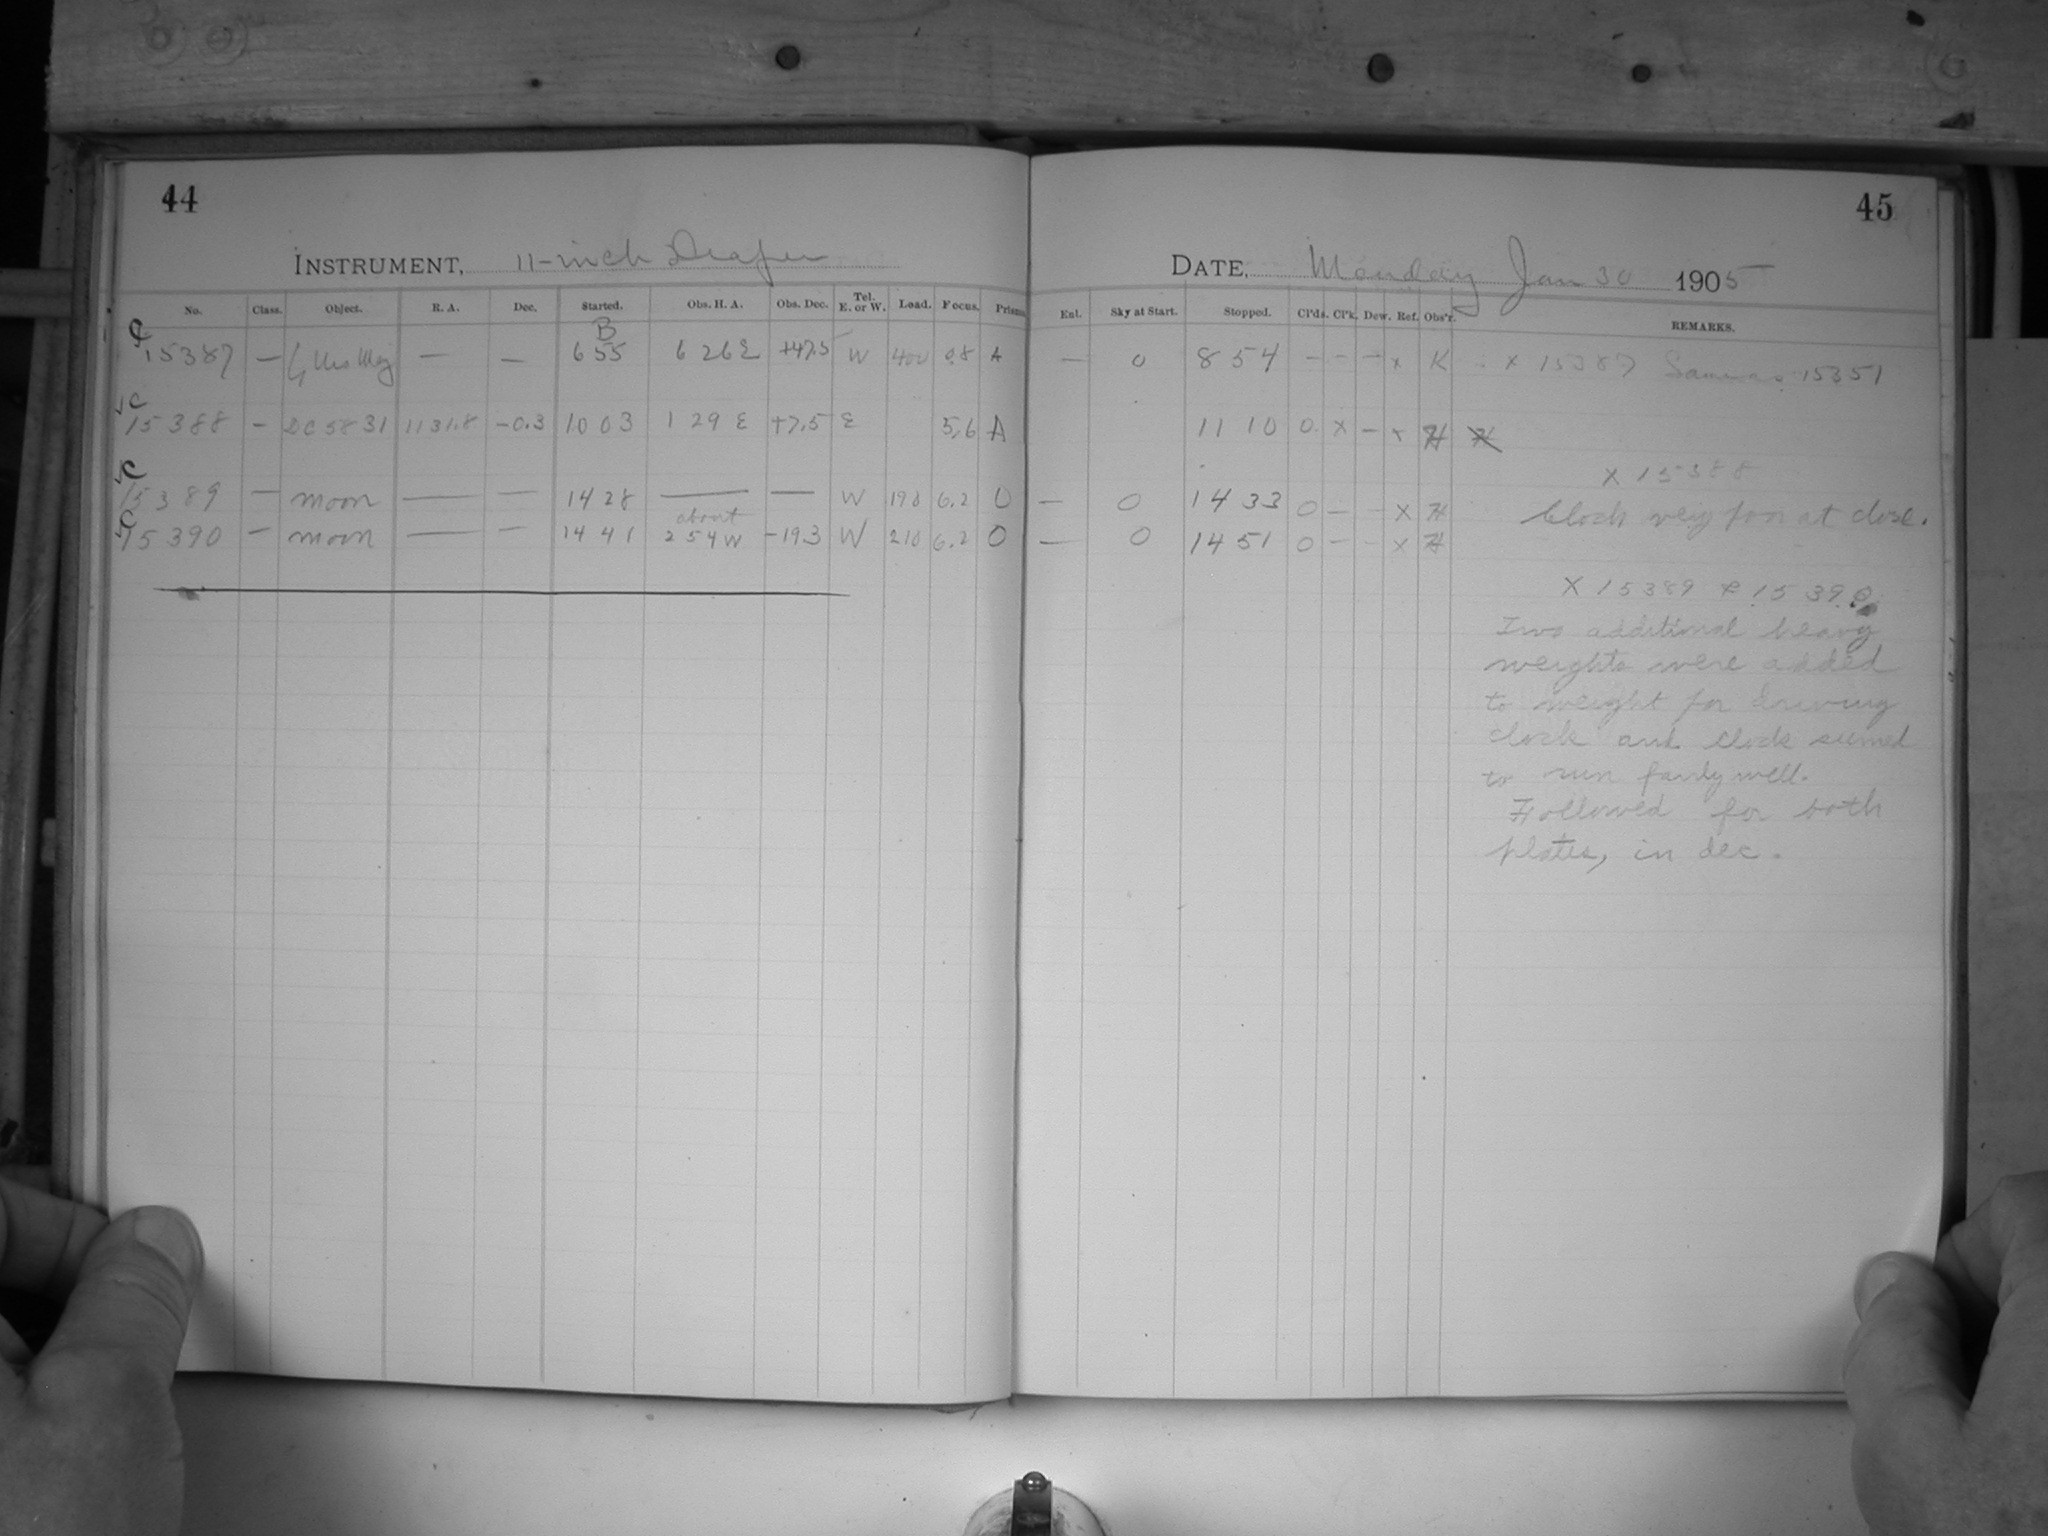 44
45
INSTRUMENT, 11-inch Draper
DATE, Monday Jan 30 1905
No. Class. Object. R. A. Dec. Started. Obs. H. A. Obs. Dec. Tel. E. or W. Load. Focus. Prism
Enl. Sky at Start. Stopped. Cl'ds. Cl'k. Dew. Ref. Obs'r. REMARKS.
B
C 15387 — — — 6 55 6 26 E +47.5 W 400 A — 0 8 54 – – – x K x 15387 Same as 15351
C 15388 — DC 5831 11 31.8 -0.3 10 03 1 29 E +7.5 E 5.6 A 11 10 0 x – x H
x 15388
C 15389 — moon — — 14 28 — — W 190 6.2 0 — 0 14 33 0 – – x H Clock very poor at close.
about
C 15390 — moon — — 14 41 2 54 W -19.3 W 210 6.2 0 — 0 14 51 0 – – x H
X 15389 & 15390
Two additional heavy
weights were added
to weight for driving
clock and clock seemed
to run fairly well.
Followed for both
plates, in dec.